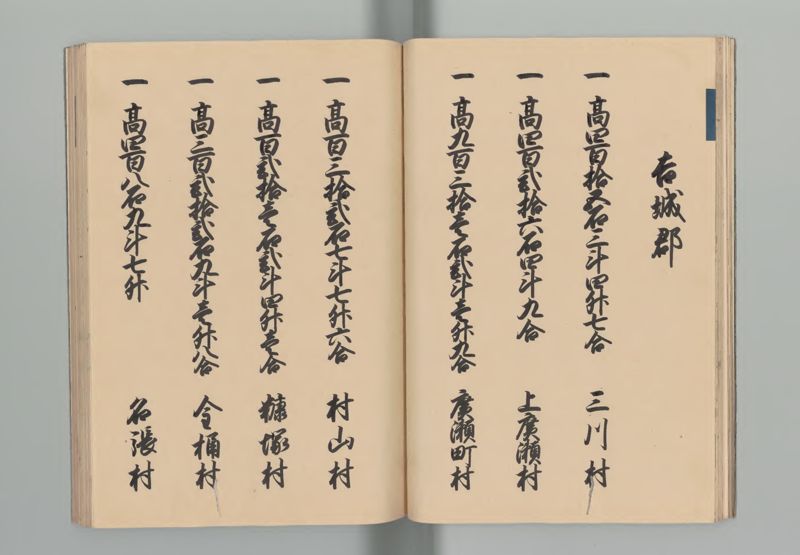 吉城郡
一 高四百拾五石三斗四升七合 三川村
一 高四百弐拾六石四斗九合 上廣瀬村
一 高九百三拾壱石弐斗壱升九合 廣瀬町村
一 高百三拾弐石七斗七升六合 村山村
一 高百弐拾壱石弐斗四升壱合 糠塚村
一 高三百弐拾弐石九斗壱升八合 今桶村
一 高四百八石九斗七升 名張村